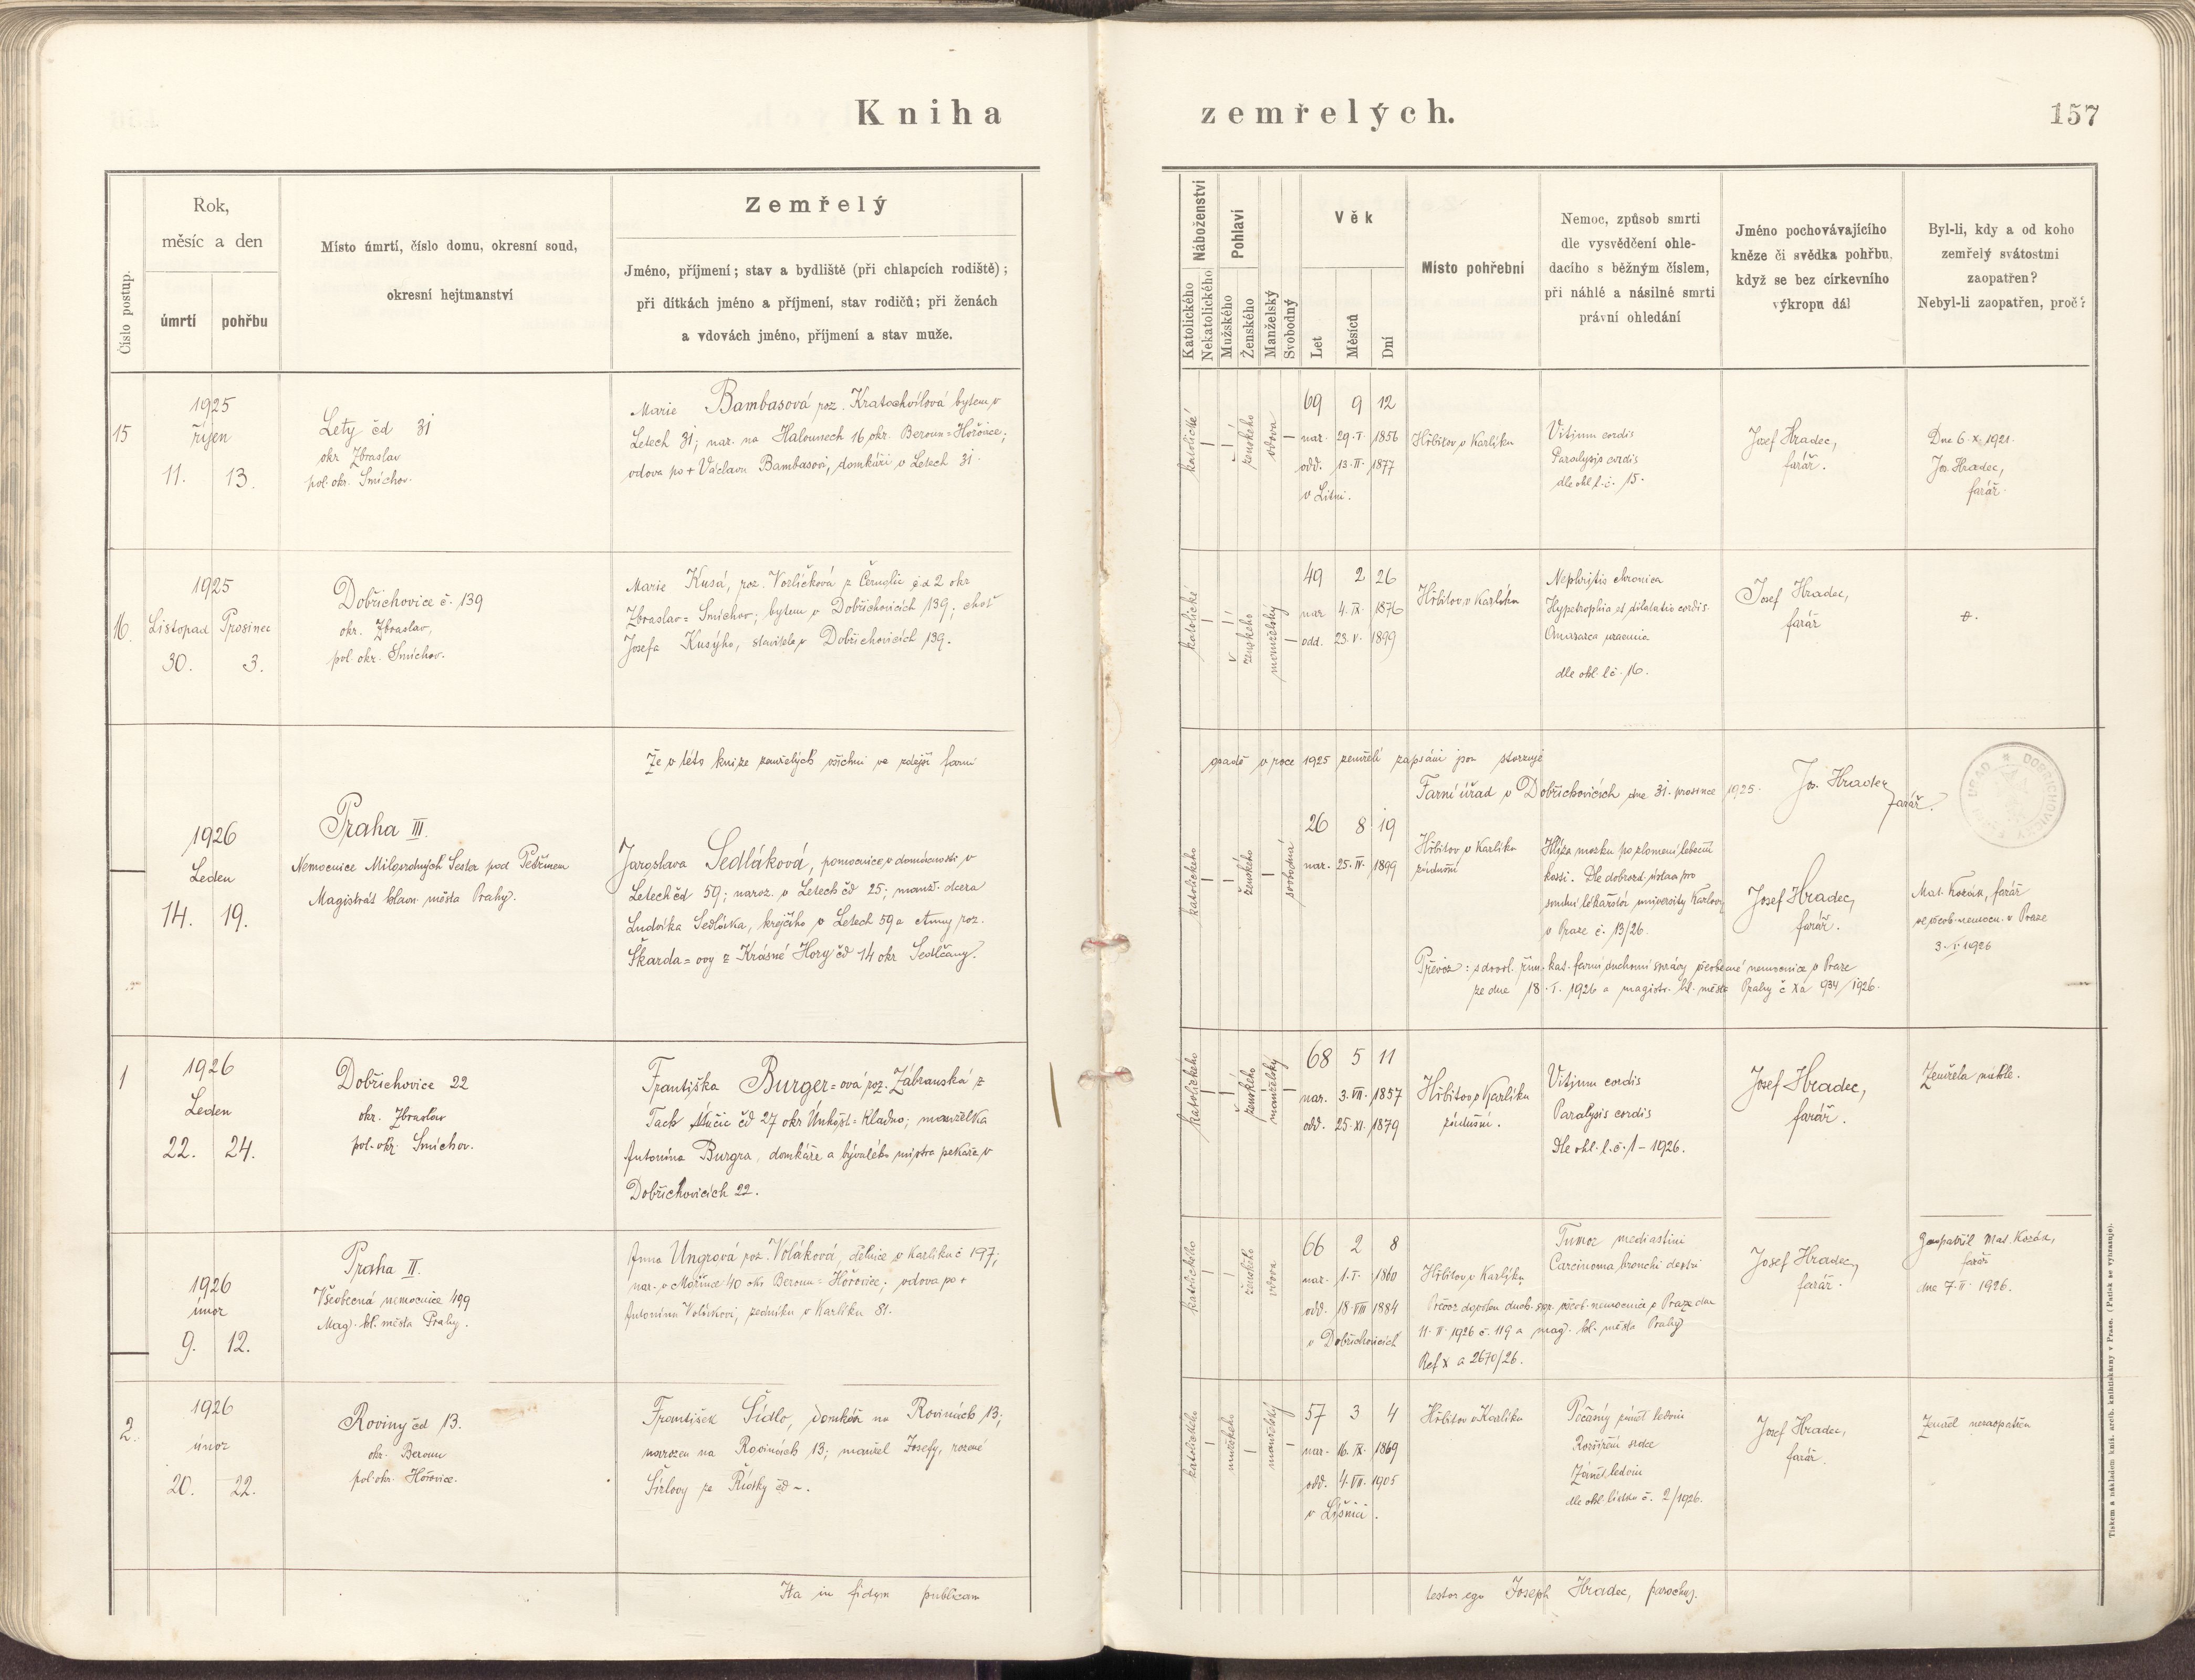 Kniha zemřelých.
157
Číslo postup.
Rok,
měsíc a den
úmrtí
pohřbu
Místo úmrtí, číslo domu, okresní soud,
okresní hejtmanství
Zemřelý
Jméno, příjmení; stav a bydliště (při chlapcích rodiště);
při dítkách jméno a příjmení, stav rodičů; při ženách
a vdovách jméno, příjmení a stav muže.
Náboženství
Katolického
Nekatolického
Pohlaví
Mužského
Ženského
Manželský
Svobodný
Věk
Let
Měsíců
Dní
Místo pohřební
Nemoc, způsob smrti
dle vysvědčení ohle-
dacího s běžným číslem,
při náhlé a násilné smrti
právní ohledání
Jméno pochovávajícího
kněze či svědka pohřbu,
když se bez církevního
výkropu dál
Byl-li, kdy a od koho
zemřelý svátostmi
zaopatřen?
Nebyl-li zaopatřen, proč?
15
1925
říjen
11. 13.
Lety čd 31
okr Zbraslav
pol. okr. Smíchov.
Marie Bambasová roz. Kratochvílová bytem v
Letech 31; nar. na Halounech 16 okr. Beroun=Hořovice;
vdova po + Václavu Bambasovi, domkáři v Letech 31.
katolické
ženského
vdova
69 9 12
nar. 29. I. 1856
odd. 13. II. 1877
v Litni.
Hřbitov v Karlíku
Vitium cordis
Paralysis cordis
dle ohl. l. č. 15.
Josef Hradec,
farář.
Dne 6. X. 1921.
Jos. Hradec,
farář.
16.
1925
Listopad Prosinec
30. 3.
Dobřichovice č. 139
okr. Zbraslav,
pol. okr. Smíchov.
Marie Kusá, roz. Vorlíčková z čd 2 okr
Zbraslav=Smíchov; bytem v Dobřichovicích 139; choť
Josefa Kusýho, stavitele v Dobřichovicích 139.
katolické
ženského
manželský
49 2 26
nar 4. IX. 1876
odd. 23. V. 1899
Hřbitov v Karlíku
Nephritis chronica
Hypetrophia et dilatatio cordis.
Anasarca uraemia
dle ohl. l č. 16.
Josef Hradec,
farář
Že v této knize zemřelých všichni ve zdejší farní
osadě v roce 1925 zemřelí zapsáni jsou stvrzuje
Farní úřad v Dobřichovicích dne 31. prosince 1925.
Jos. Hradec,
farář.
1926
Leden
14. 19.
Praha III.
Nemocnice Milosrdných Sester pod Petřínem
Magistrát hlavn. města Prahy.
Jaroslava Sedláková, pomocnice v domácnosti v
Letech čd 59; naroz. v Letech čd 25; manž. dcera
Ludvíka Sedláka, krejčího v Letech 59 a Anny roz.
Škarda=ovy z Krásné Hory čd 14 okr Sedlčany.
katolického
ženského
svobodná
26 8 19
nar. 25. IV. 1899
Hřbitov v Karlíku
zádušní
Hlíza mozku po zlomení lebeční
kosti. Dle dobrozd. ústavu pro
soudní lékařství university Karlovy
v Praze č. 13/26.
Josef Hradec,
farář.
Mat. Kozák, farář
ve všeob. nemocn. v Praze
3. I. 1926
Převoz: s dovol. řím. kat. farní duchovní správy všeobecné nemocnice v Praze
ze dne 18. I. 1926 a magistr. hl. města Prahy č Xa 934/1926.
1
1926
Leden
22. 24.
Dobřichovice 22
okr. Zbraslav
pol. okr. Smíchov.
Františka Burger=ová roz. Zábranská z
Tach čd 27 okr Unhošť=Kladno; manželka
Antonína Burgra, domkáře a bývalého mistra pekaře v
Dobřichovicích 22.
katolického
ženského
manželský
68 5 11
nar. 3. VII. 1857
odd. 25. XI. 1879
Hřbitov v Karlíku
zádušní.
Vitium cordis
Paralysis cordis
Dle ohl. l. č. 1 – 1926.
Josef Hradec,
farář.
Zemřela náhle.
1926
únor
9. 12.
Praha II.
Všeobecná nemocnice 499
Mag. hl. města Prahy.
Anna Ungrová roz. Voláková, dělnice v Karlíku č 197;
nar. v Mořince 40 okr Beroun=Hořovice; vdova po +
Antonínu zedníku v Karlíku 81.
katolického
ženského
vdova
66 2 8
nar. 1. I. 1860
odd. 18 VIII 1884
v Dobřichovicích
Hřbitov v Karlíku
Tumor mediastini
Carcinoma bronchi dextri
Převoz dovolen duch. spr. všeob. nemocnice v Praze dne
11. II. 1926 č. 119 a mag. hl. města Prahy
Ref X a 2670/26.
Josef Hradec,
farář.
Zaopatřil Mat. Kozák,
farář
dne 7. II. 1926.
2.
1926
únor
20. 22.
Roviny čd 13.
okr. Beroun
pol. okr. Hořovice.
František Šídlo, domkář na Rovinách 13;
narozen na Rovinách 13; manžel Josefy, rozené
ze Řidky čd –.
katolického
mužského
manželský
57 3 4
nar. 16. IX. 1869
odd. 4. VII. 1905
v Líšnici.
Hřbitov v Karlíku
zánět ledvin
Rozšíření srdce
Zánět ledvin
dle ohl lístku č. 2/1926.
Josef Hradec,
farář.
Zemřel nezaopatřen
Ita in fidem publicam testor ego Joseph Hradec, parochus.
Tiskem a nákladem kníž. arcib. knihtiskárny v Praze. (Patisk se vyhrazuje).